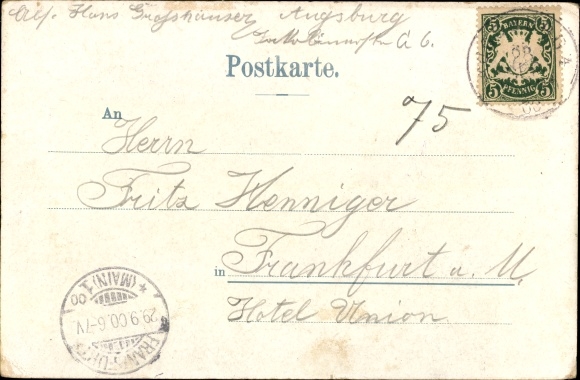 Hans Grosshauser Augsburg
A 6.
Postkarte.
5 BAYERN 5
5 PFENNIG 5
75
An
Herrn
Fritz Henniger
in Frankfurt a. M.
Hotel Union
FRANKFURT
(MAIN) 1
29.9.00.6-7V.
00